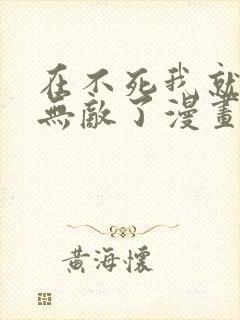 在不死我就
無敵了漫畫
黃海懷